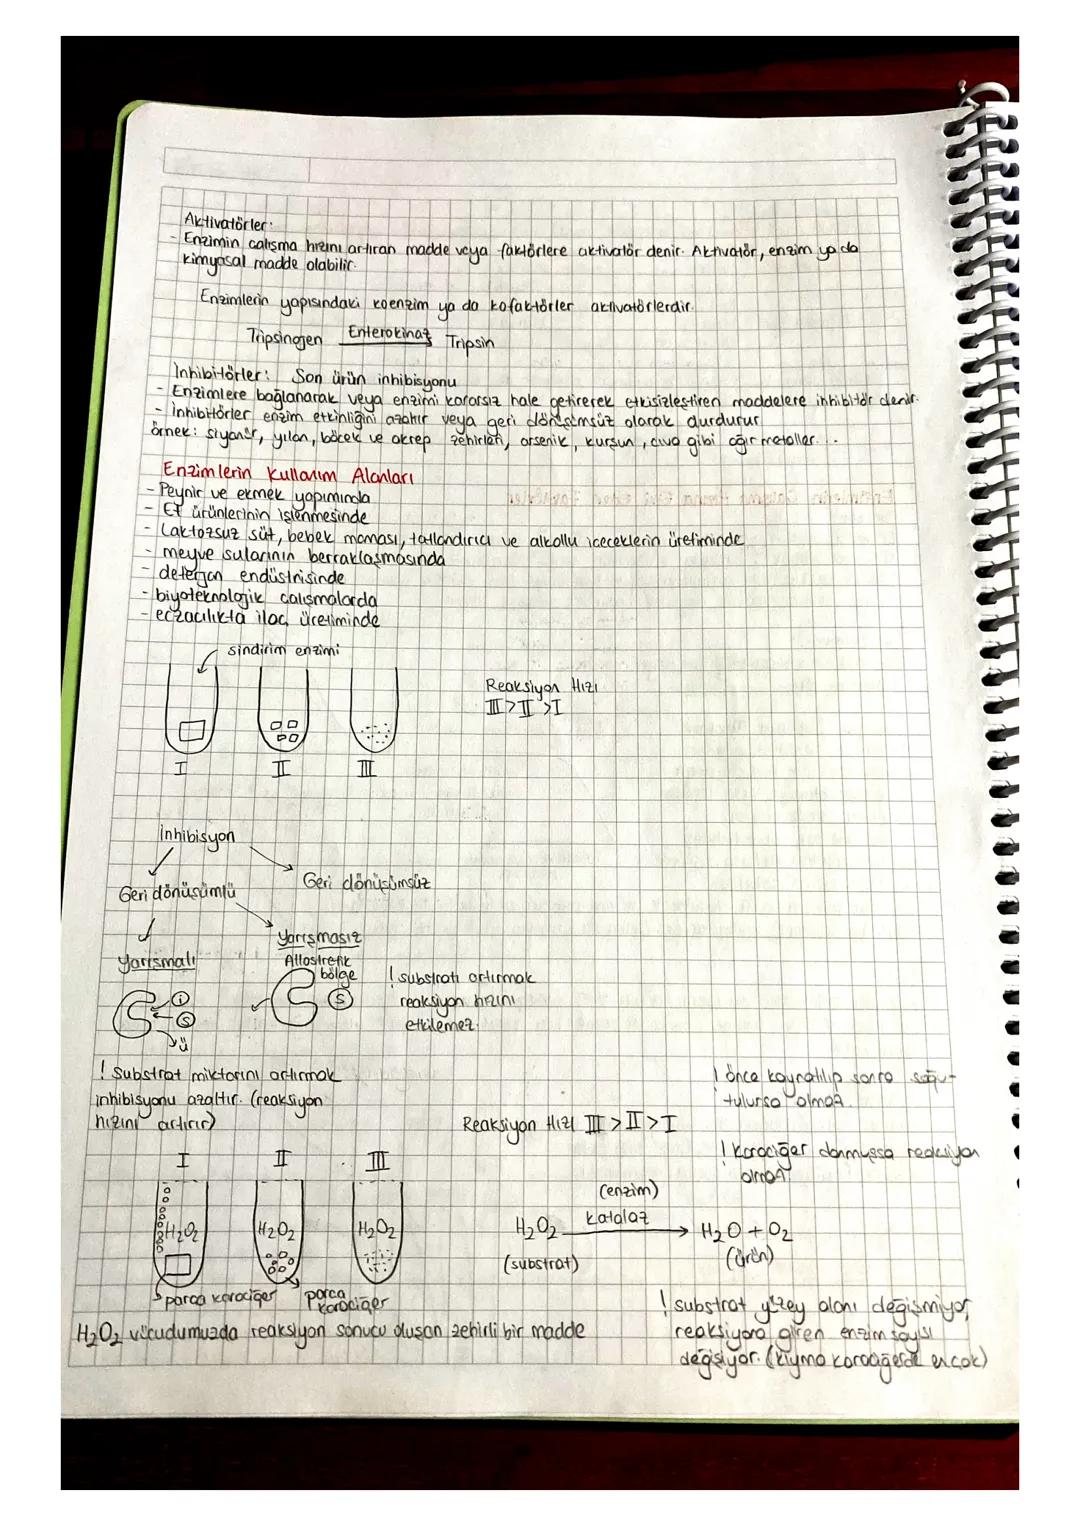 Aktivatörler:
- Enzimin çalışma hızını artıran madde veya faktörlere aktivatör denir. Aktivatör, enzim ya da
kimyasal madde olabilir.
Enzimlerin yapısındaki koenzim ya da kofaktörler aktivatörlerdir.
Tripsinojen Enterokinaz Tripsin
İnhibitörler: Son ürün inhibisyonu
- Enzimlere bağlanarak veya enzimi kararsız hale getirerek etkisizleştiren maddelere inhibitör denir.
- İnhibitörler enzim etkinliğini azaltır veya geri dönüşümsüz olarak durdurur
örnek: siyanür, yılan, böcek ve akrep zehirleri, arsenik, kurşun, civa gibi ağır metaller...
Enzimlerin Kullanım Alanları
- Peynir ve ekmek yapımında
- Et ürünlerinin işlenmesinde
- Laktozsuz süt, bebek maması, tatlandırıcı ve alkollü içeceklerin üretiminde
- meyve sularının berraklaşmasında
- deterjan endüstrisinde
- biyoteknolojik çalışmalarda
- eczacılıkta ilaç üretiminde
sindirim enzimi
Reaksiyon Hızı
III > II > I
I II III
inhibisyon
Geri dönüşümlü
Geri dönüşümsüz
Yarışmalı
Yarışmasız
Allosterik
bölge
i
S
ü
S
! substratı artırmak
reaksiyon hızını
etkilemez.
! Substrat miktarını artırmak
inhibisyonu azaltır. (reaksiyon
hızını artırır)
Reaksiyon Hızı III > II > I
! önce kaynatılıp sonra soğu-
tulursa olmaz.
! Karaciğer donmuşsa reaksiyon
olmaz.
I II III
H₂O₂ H₂O₂ H₂O₂
parça karaciğer
parça
karaciğer
(enzim)
katalaz
H₂O₂ → H₂O + O₂
(substrat) (ürün)
H₂O₂ vücudumuzda reaksiyon sonucu oluşan zehirli bir madde
! substrat yüzey alanı değişmiyor,
reaksiyona giren enzim sayısı
değişiyor. (kıyma karaciğerde en çok)